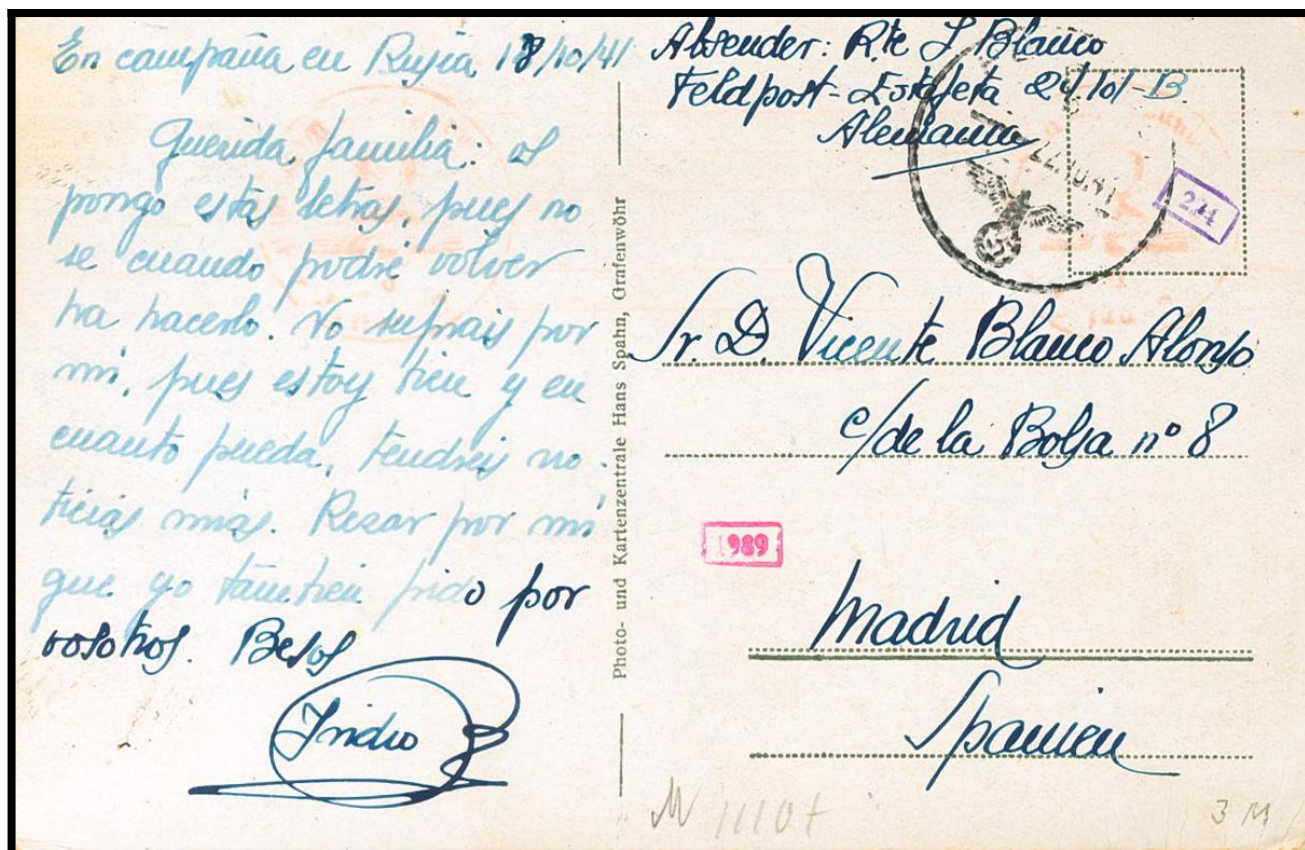 En campaña en Rusia 18/10/41
Querida familia: os
pongo estas letras, pues no
se cuando podré volver
ha hacerlo. No sufrais por
mi, pues estoy bien y en
cuanto pueda, tendreis no-
ticias mias. Rezar por mi
que yo tambien pido por
vosotros. Besos
Isidro
Photo- und Kartenzentrale Hans Spahn, Grafenwöhr
Absender: Rte I Blanco
Feldpost-Estafeta
Alemania
22.10.41
234
Sr. D. Vicente Blanco Alonso
c/de la Bolsa nº 8
1989
Madrid
Spanien
3 M